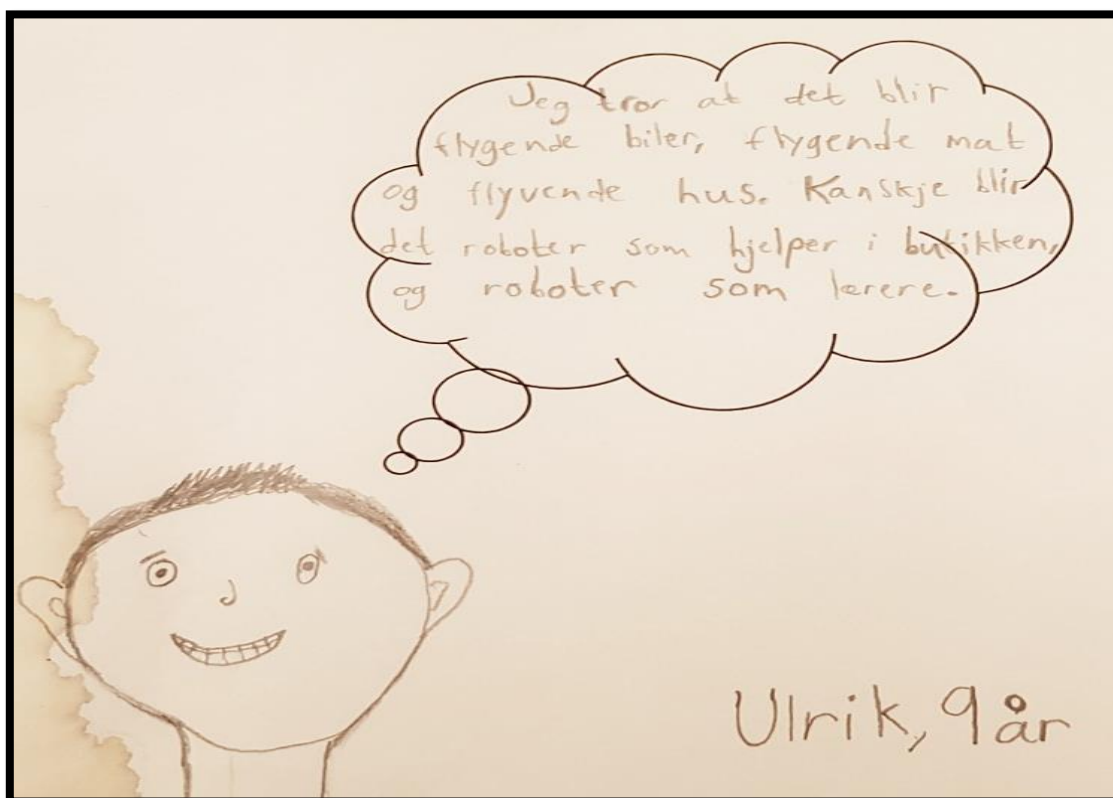 Jeg tror at det blir
flygende biler, flygende mat
og flyvende hus. Kanskje blir
det roboter som hjelper i butikken,
og roboter som lærere.
Ulrik, 9 år